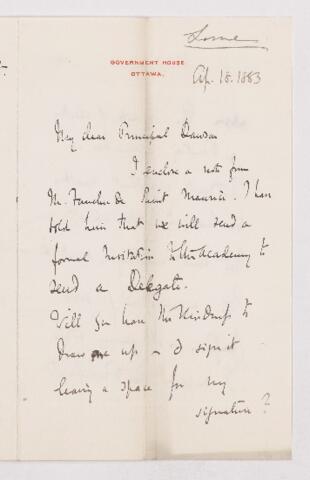 Lorne
GOVERNMENT HOUSE
OTTAWA.
Ap. 18. 1883
My dear Principal Dawson
I enclose a note from
Mr. Faucher de Saint Maurice. I have
told him that we will send a
formal Invitation to the Academy to
send a Delegate.
Will you have the kindness to
Draw up & sign it
leaving a space for my
signature?